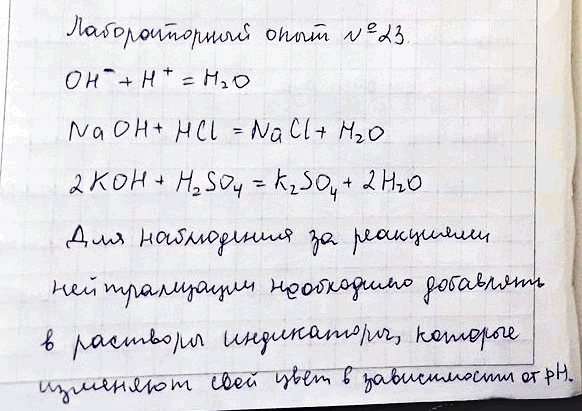 Лабораторный опыт №23.
OH⁻ + H⁺ = H₂O
NaOH + HCl = NaCl + H₂O
2KOH + H₂SO₄ = K₂SO₄ + 2H₂O
Для наблюдения за реакциями
нейтрализации необходимо добавлять
в растворы индикаторы, которые
изменяют свой цвет в зависимости от pH.